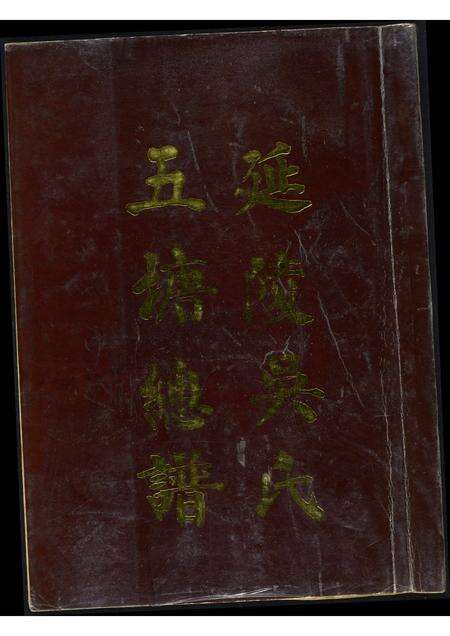 延陵吳氏
五塘總譜